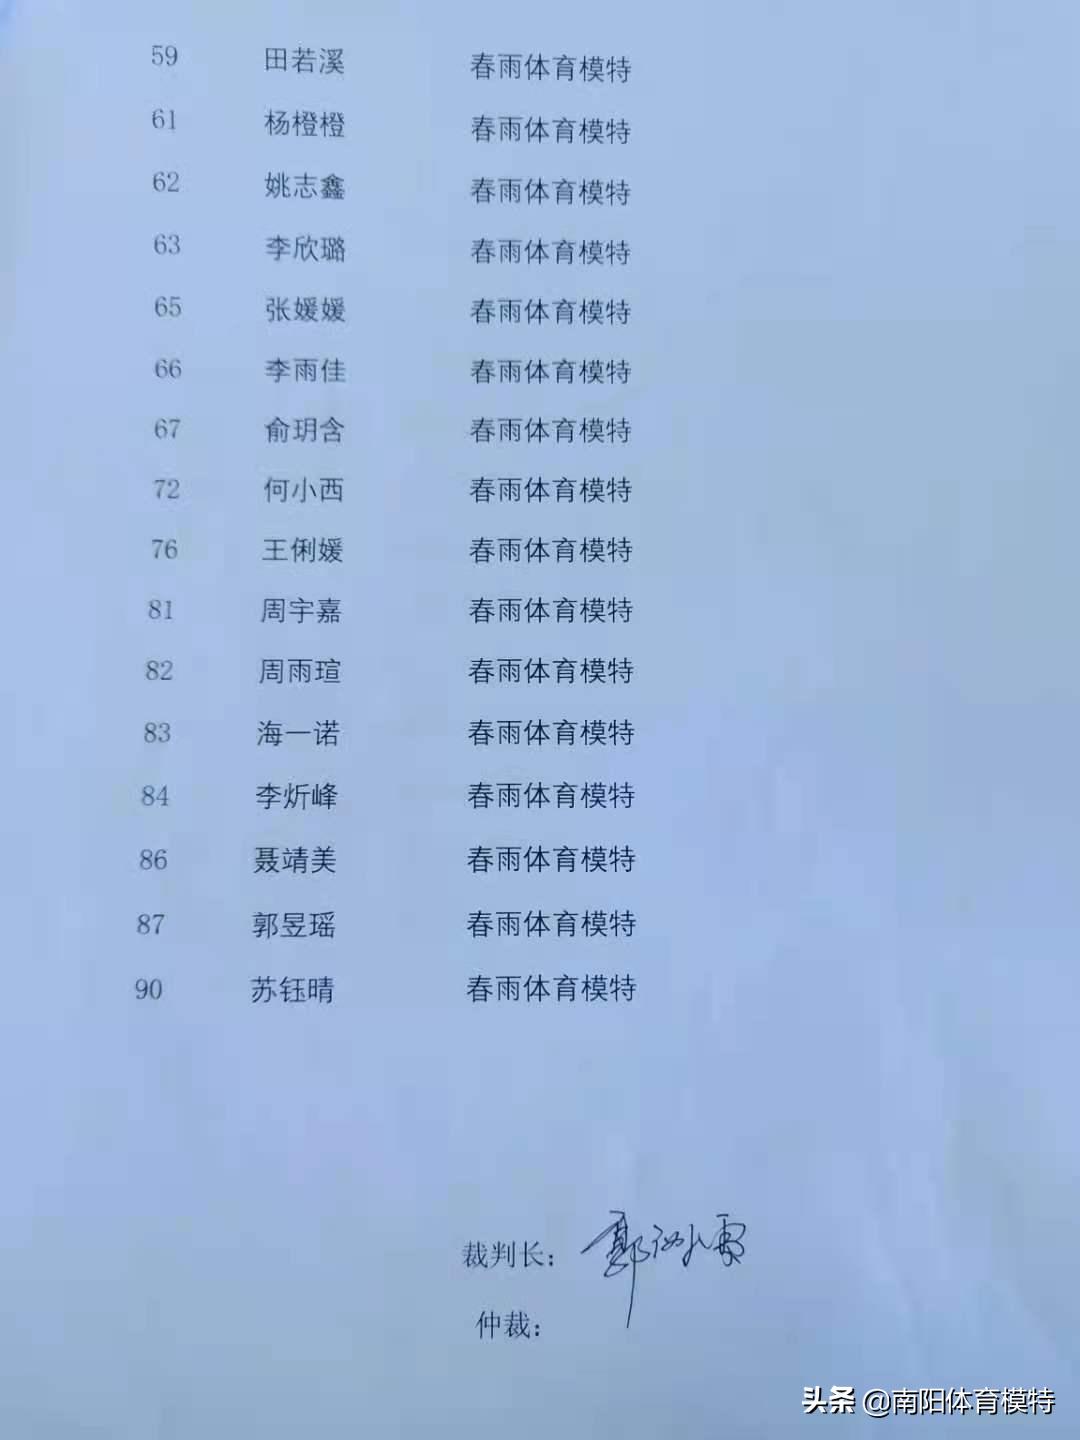 59 田若溪 春雨体育模特
61 杨橙橙 春雨体育模特
62 姚志鑫 春雨体育模特
63 李欣璐 春雨体育模特
65 张媛媛 春雨体育模特
66 李雨佳 春雨体育模特
67 俞玥含 春雨体育模特
72 何小西 春雨体育模特
76 王俐媛 春雨体育模特
81 周宇嘉 春雨体育模特
82 周雨瑄 春雨体育模特
83 海一诺 春雨体育模特
84 李炘峰 春雨体育模特
86 聂靖美 春雨体育模特
87 郭昱瑶 春雨体育模特
90 苏钰晴 春雨体育模特
裁判长：郭
仲裁：
头条 @南阳体育模特